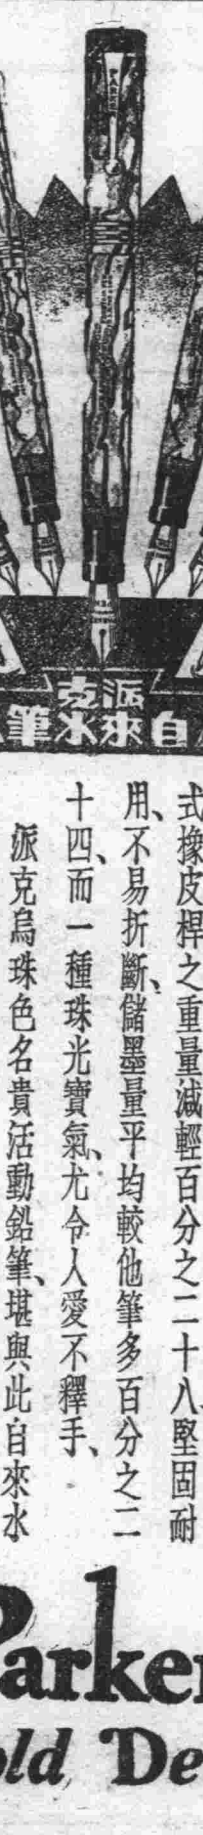 PARKER
派克
自來水筆
式橡皮桿之重量減輕百分之二十八、堅固耐
用、不易折斷、儲墨量平均較他筆多百分之二
十四、而一種珠光寶氣、尤令人愛不釋手、
派克烏珠色名貴活動鉛筆、堪與此自來水
Parker
old De